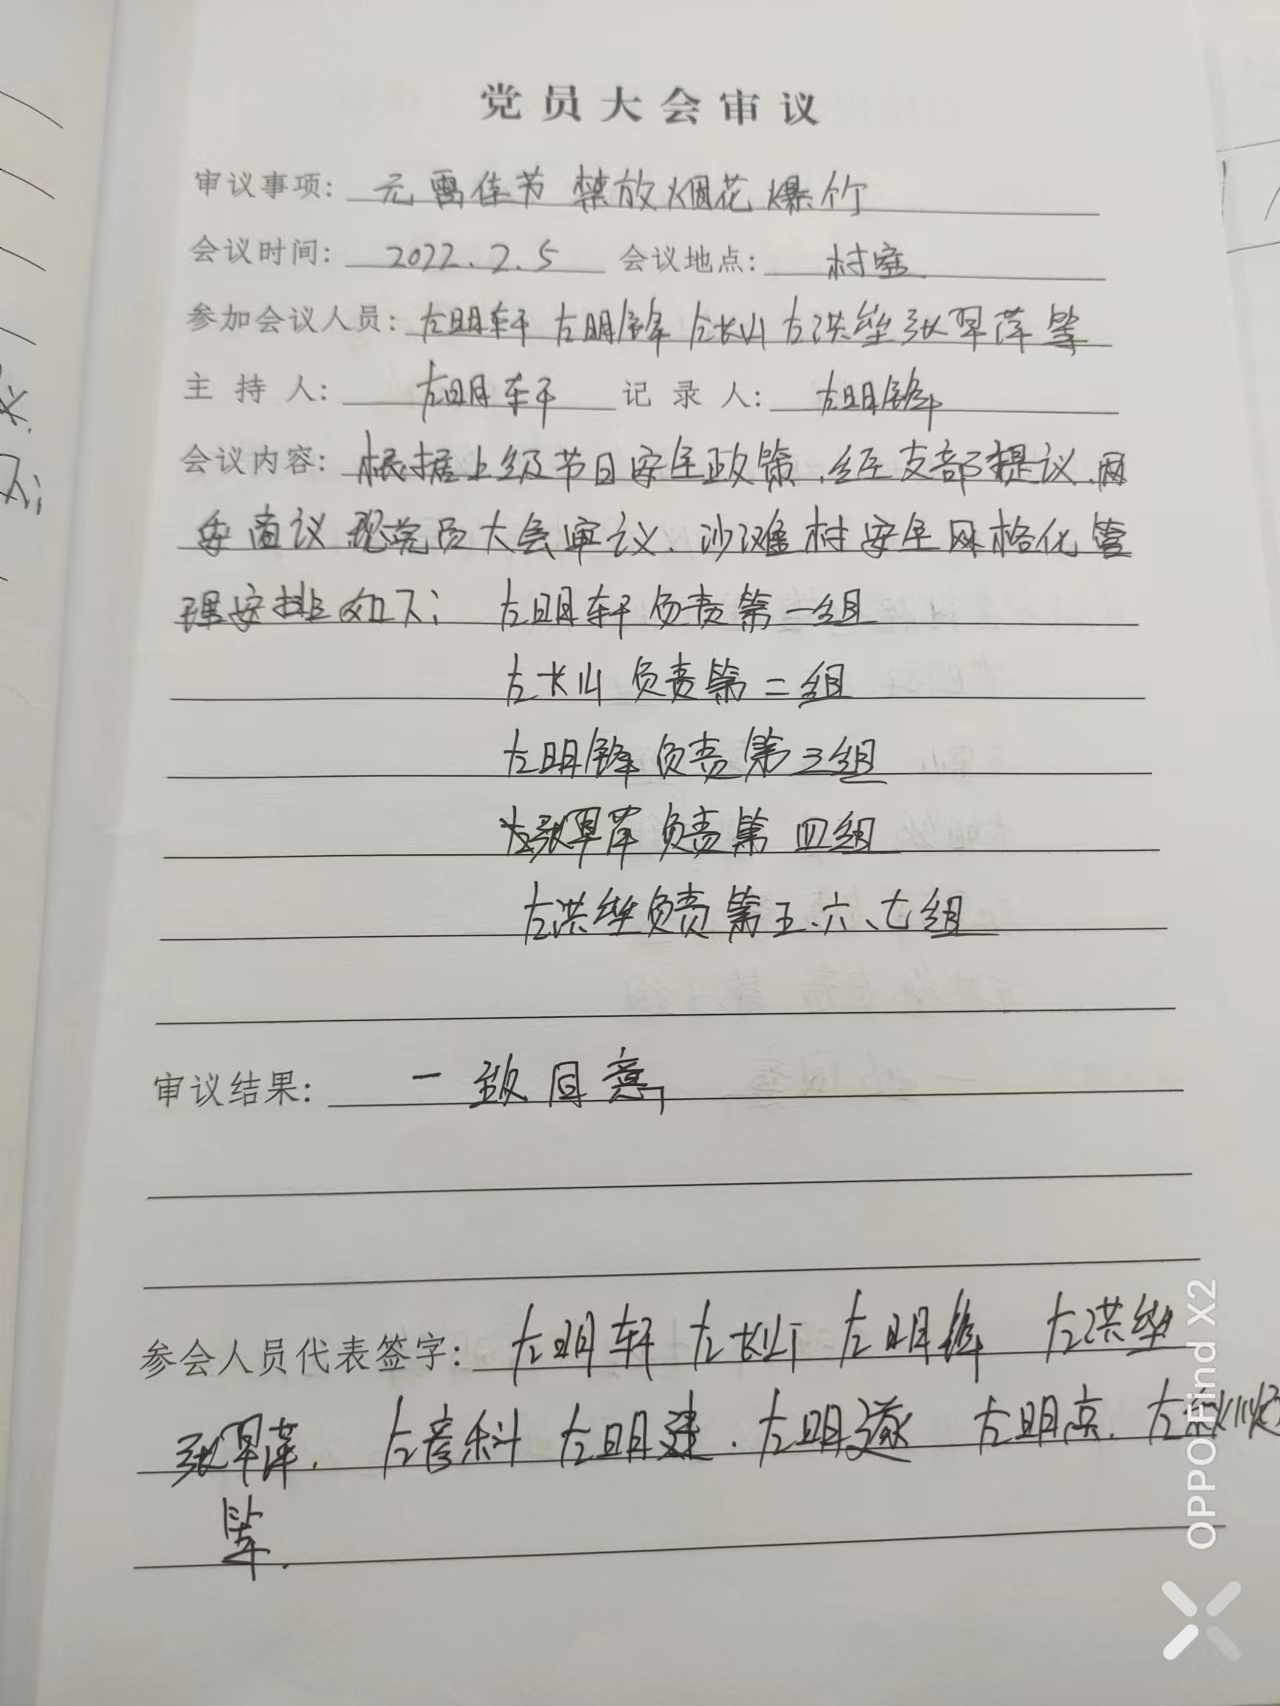 党员大会审议
审议事项: 元宵佳节 禁放烟花爆竹
会议时间: 2022.2.5 会议地点: 村室
参加会议人员: 左明轩 左明锋 左长山 左洪垒 张翠萍 等
主持人: 左明轩 记录人: 左明锋
会议内容: 根据上级节日安全政策、经支部提议、两
委商议 现党员大会审议、沙滩村安全网格化管
理安排如下: 左明轩 负责第一组
左长山 负责第二组
左明锋 负责第三组
张翠萍 负责第四组
左洪垒负责第五、六、七组
审议结果: 一致同意
参会人员代表签字: 左明轩 左长山 左明锋 左洪垒
张翠萍. 左彦科 左明建. 左明遂 左明点. 左
等.
OPPO Find X2